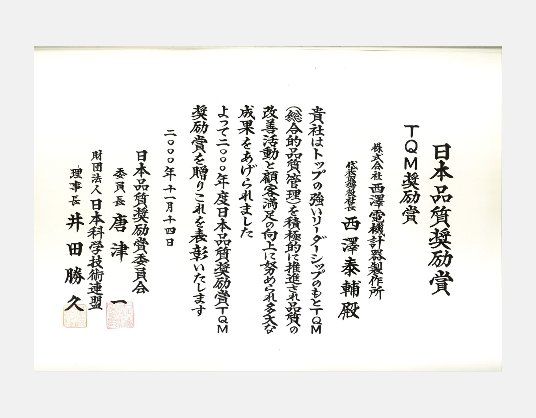 日本品質奨励賞
TQM奨励賞
株式会社 西澤電機計器製作所
代表取締役社長 西澤泰輔殿
貴社はトップの強いリーダーシップのもとTQM
(総合的品質管理)を積極的に推進され品質の
改善活動と顧客満足の向上に努められ多大な
成果をあげられました
よって二〇〇〇年度日本品質奨励賞TQM
奨励賞を贈りこれを表彰いたします
二〇〇〇年十一月十四日
日本品質奨励賞委員会
委員長 唐津 一
財団法人 日本科学技術連盟
理事長 井田勝久